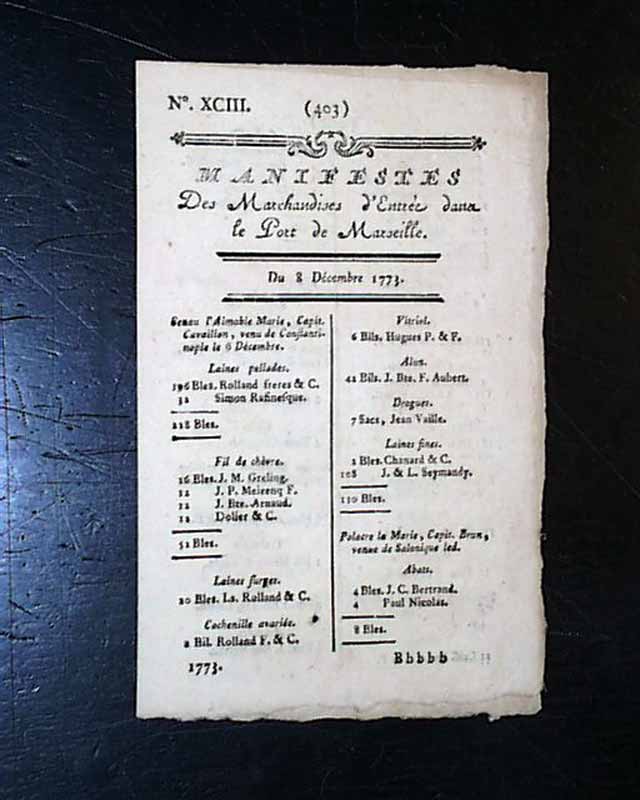 N°. XCIII. (403)
MANIFESTES
Des Marchandises d'Entrée dans
le Port de Marseille.
Du 8 Décembre 1773.
Senau l'Aimable Marie, Capit.
Cavaillon, venu de Constanti-
nople le 6 Décembre.
Laines pellades.
196 Bles. Rolland freres & C.
32 Simon Rafinesque.
228 Bles.
Fil de chèvre.
16 Bles. J. M. Greling.
12 J. P. F.
12 J. Bte. Arnaud.
12 Dolier & C.
52 Bles.
Laines surges.
20 Bles. Ls. Rolland & C.
Cochenille avariée.
2 Bil. Rolland F. & C.
1773.
Vitriol.
6 Bils. Hugues P. & F.
Alun.
42 Bils. J. Bte. F. Aubert.
Drogues.
7 Sacs, Jean Vaille.
Laines fines.
2 Bles. Chanard & C.
108 J. & L. Seymandy.
110 Bles.
Polacre la Marie, Capit. Brun,
venue de Salonique led.
Abats.
4 Bles. J. C. Bertrand.
4 Paul Nicolas.
8 Bles.
Bbbbb